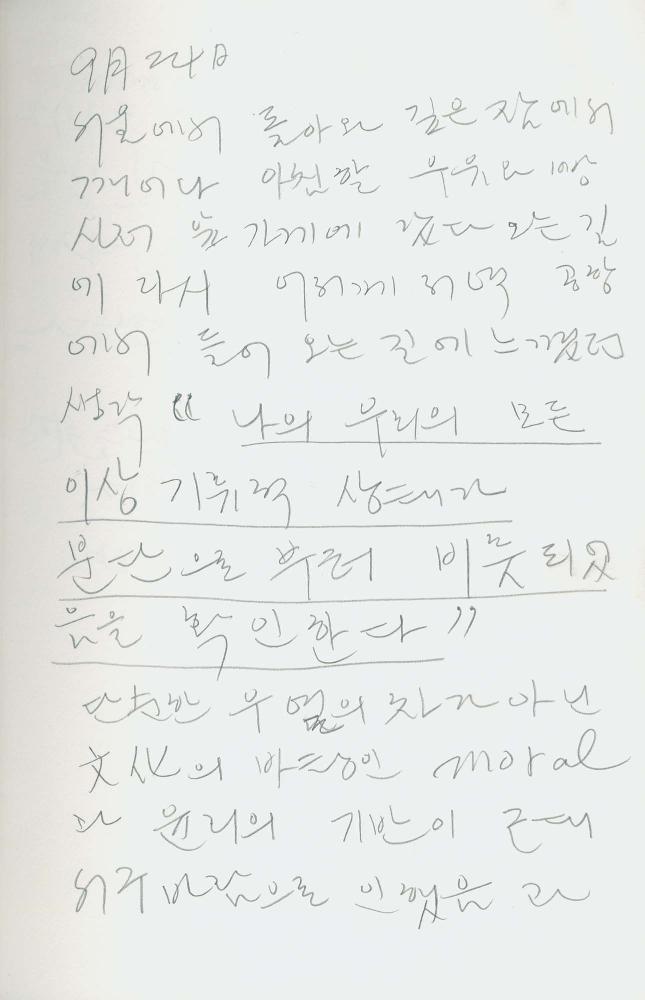 9月 24日
서울에서 돌아와 깊은 잠에서
깨어나 아침할 우유와 빵
사러 윗 가게에 갔다 오는 길
에 다시 어러께 저녁 공항
에서 들어 오는 길에 느꼈던
생각 “나의 우리의 모든
이상 기후적 상태가
분단으로 부터 비롯되었
음을 확인한다”
단순한 우열의 차가 아닌
文化의 바탕인 moral
과 윤리의 기반이 근대
서구바람으로 인했음 과